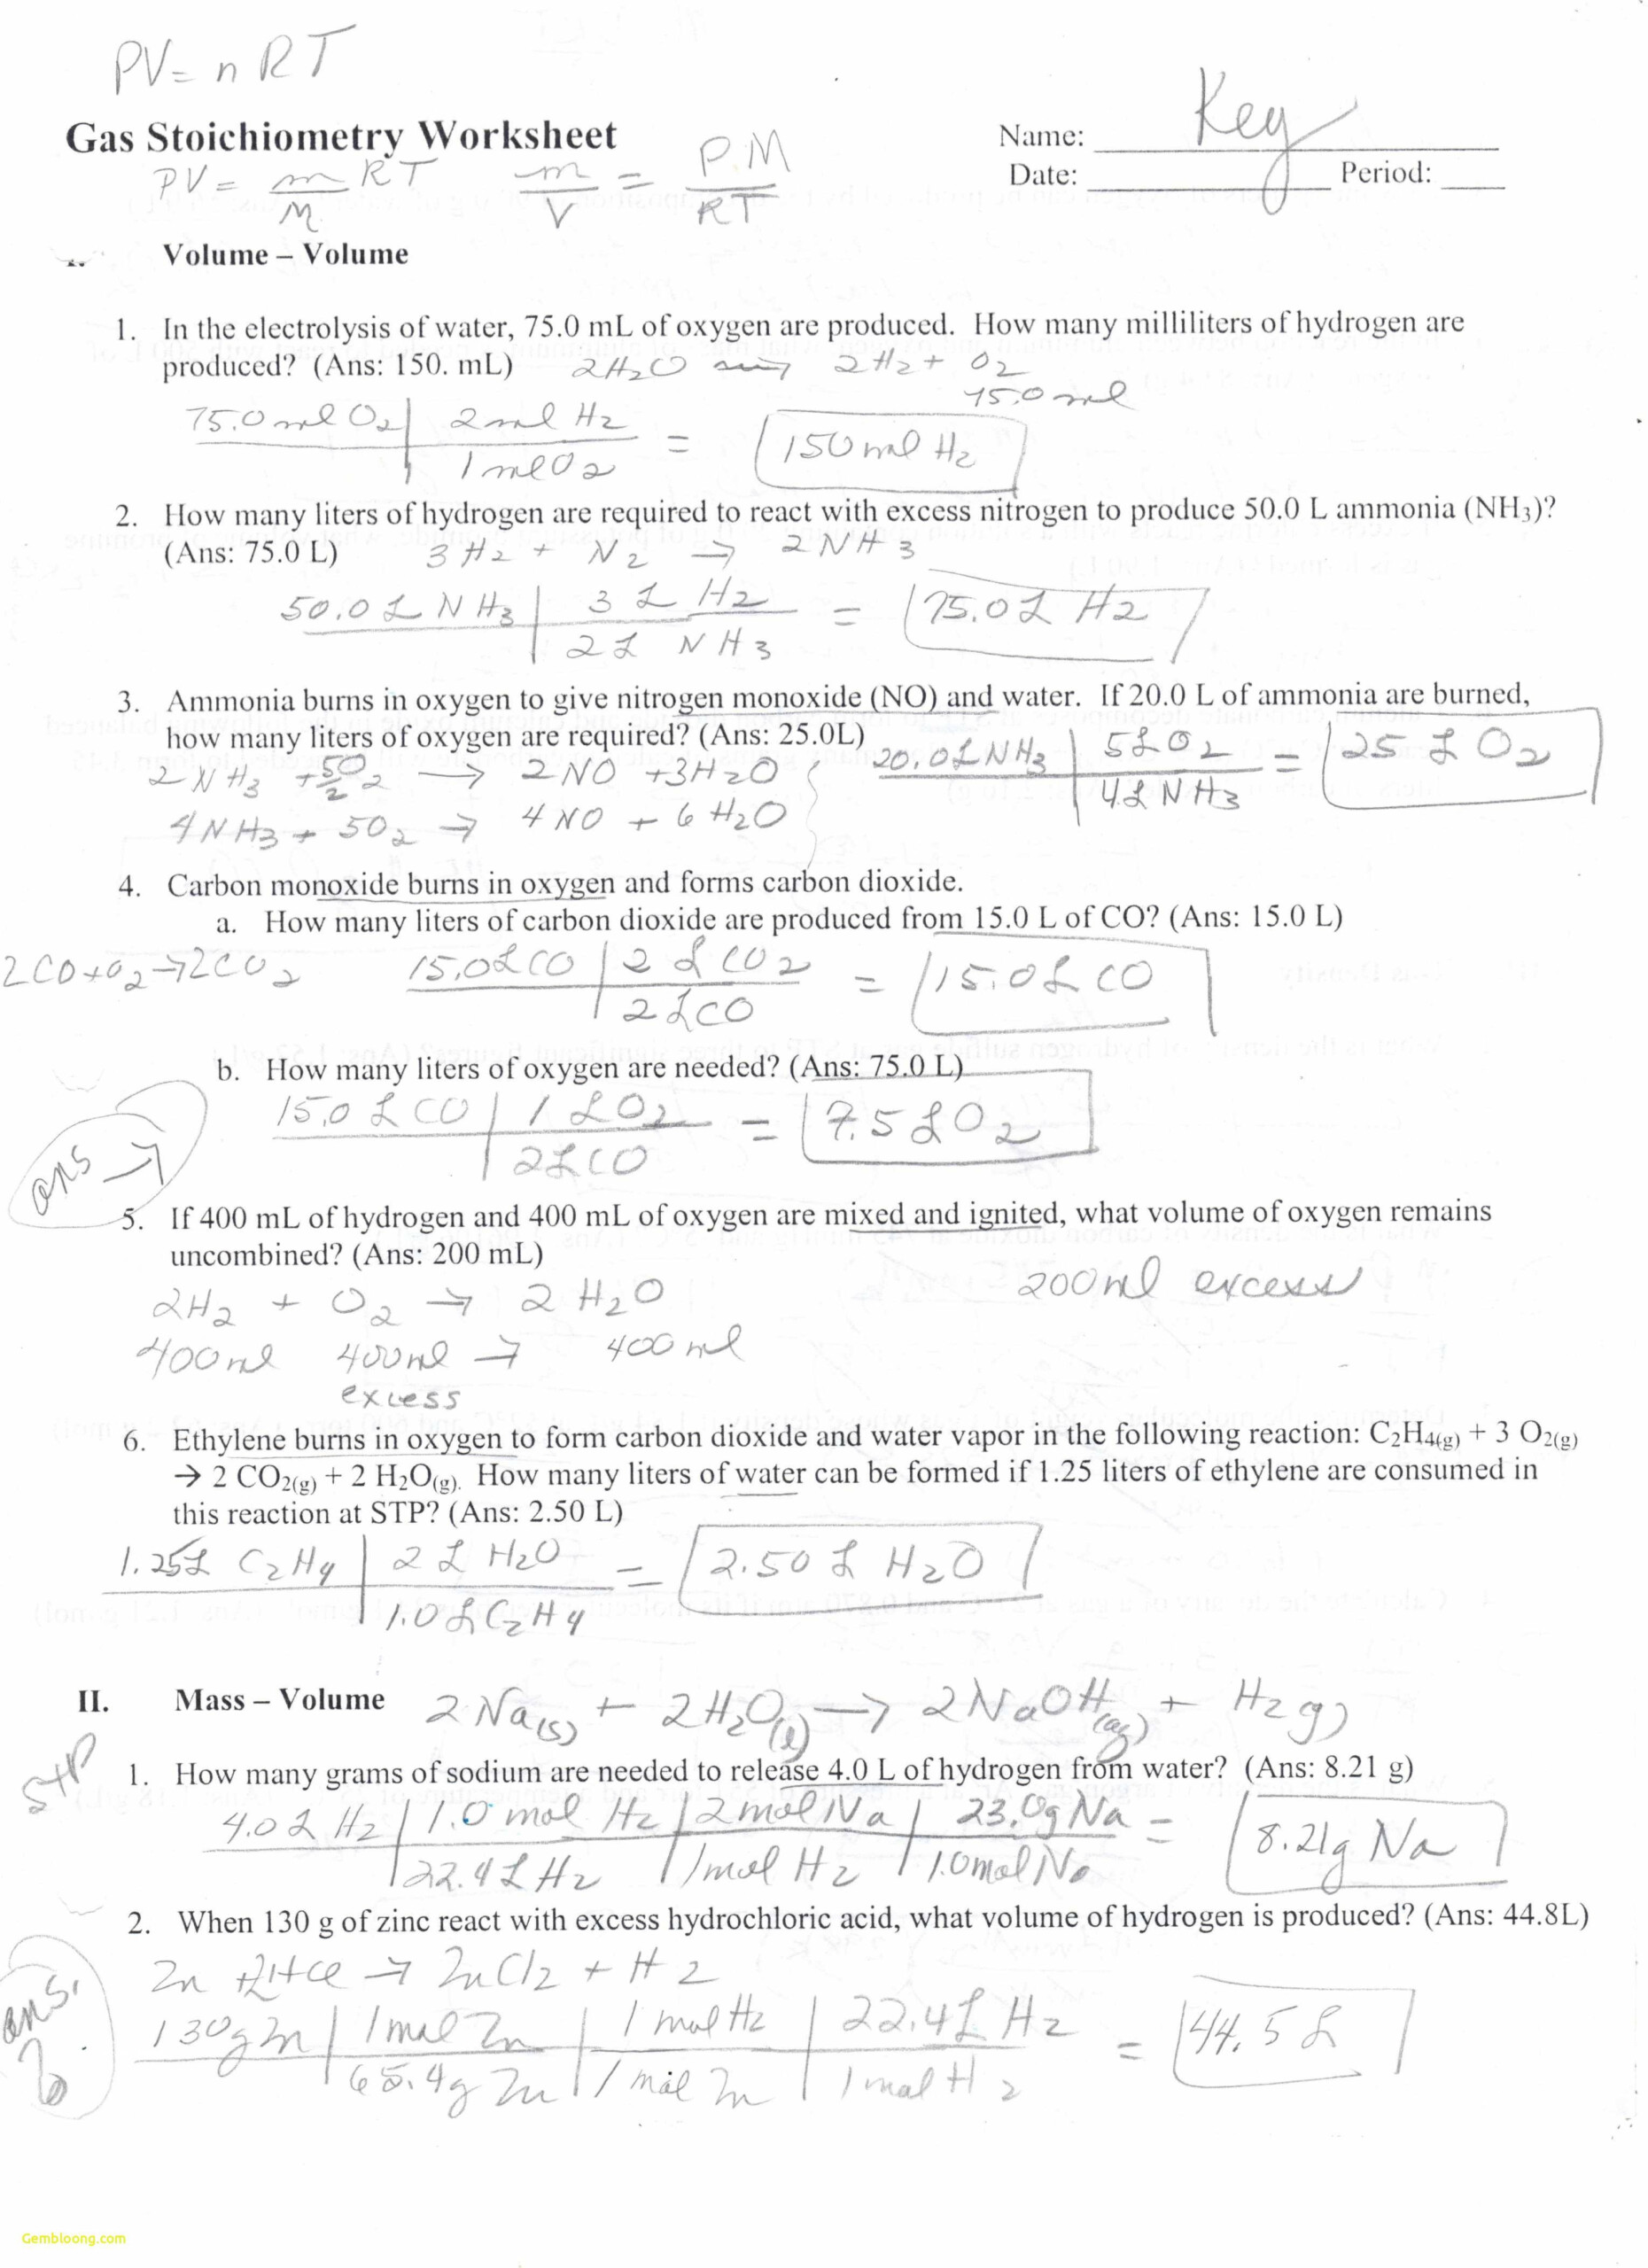 PV = nRT
Gas Stoichiometry Worksheet
Name: Key
Date: Period:
PV = m/M RT m/V = P.M/RT
Volume – Volume
1. In the electrolysis of water, 75.0 mL of oxygen are produced. How many milliliters of hydrogen are
produced? (Ans: 150. mL) 2H2O → 2H2 + O2
75.0 ml
75.0 ml O2 | 2 ml H2 = 150 ml H2
1 ml O2
2. How many liters of hydrogen are required to react with excess nitrogen to produce 50.0 L ammonia (NH3)?
(Ans: 75.0 L) 3H2 + N2 → 2NH3
50.0 L NH3 | 3 L H2 = 75.0 L H2
2 L NH3
3. Ammonia burns in oxygen to give nitrogen monoxide (NO) and water. If 20.0 L of ammonia are burned,
how many liters of oxygen are required? (Ans: 25.0L) 20.0 L NH3 | 5 L O2 = 25 L O2
4 L NH3
2NH3 + 5/2 O2 → 2NO + 3H2O
4NH3 + 5O2 → 4NO + 6H2O
4. Carbon monoxide burns in oxygen and forms carbon dioxide.
a. How many liters of carbon dioxide are produced from 15.0 L of CO? (Ans: 15.0 L)
2CO + O2 → 2CO2 15.0 L CO | 2 L CO2 = 15.0 L CO
2 L CO
b. How many liters of oxygen are needed? (Ans: 75.0 L)
15.0 L CO | 1 L O2 = 7.5 L O2
2 L CO
ans →
5. If 400 mL of hydrogen and 400 mL of oxygen are mixed and ignited, what volume of oxygen remains
uncombined? (Ans: 200 mL)
200 ml excess
2H2 + O2 → 2H2O
400 ml 400 ml → 400 ml
excess
6. Ethylene burns in oxygen to form carbon dioxide and water vapor in the following reaction: C2H4(g) + 3 O2(g)
→ 2 CO2(g) + 2 H2O(g). How many liters of water can be formed if 1.25 liters of ethylene are consumed in
this reaction at STP? (Ans: 2.50 L)
1.25 L C2H4 | 2 L H2O = 2.50 L H2O
1.0 L C2H4
II. Mass – Volume 2Na(s) + 2H2O(l) → 2NaOH(aq) + H2(g)
STP
1. How many grams of sodium are needed to release 4.0 L of hydrogen from water? (Ans: 8.21 g)
4.0 L H2 | 1.0 mol H2 | 2 mol Na | 23.0g Na = 8.21g Na
22.4 L H2 | 1 mol H2 | 1.0 mol Na
2. When 130 g of zinc react with excess hydrochloric acid, what volume of hydrogen is produced? (Ans: 44.8L)
Zn + 2HCl → ZnCl2 + H2
ans.
130g Zn | 1 mol Zn | 1 mol H2 | 22.4 L H2 = 44.5 L
65.4g Zn | 1 mol Zn | 1 mol H2
Gembloong.com